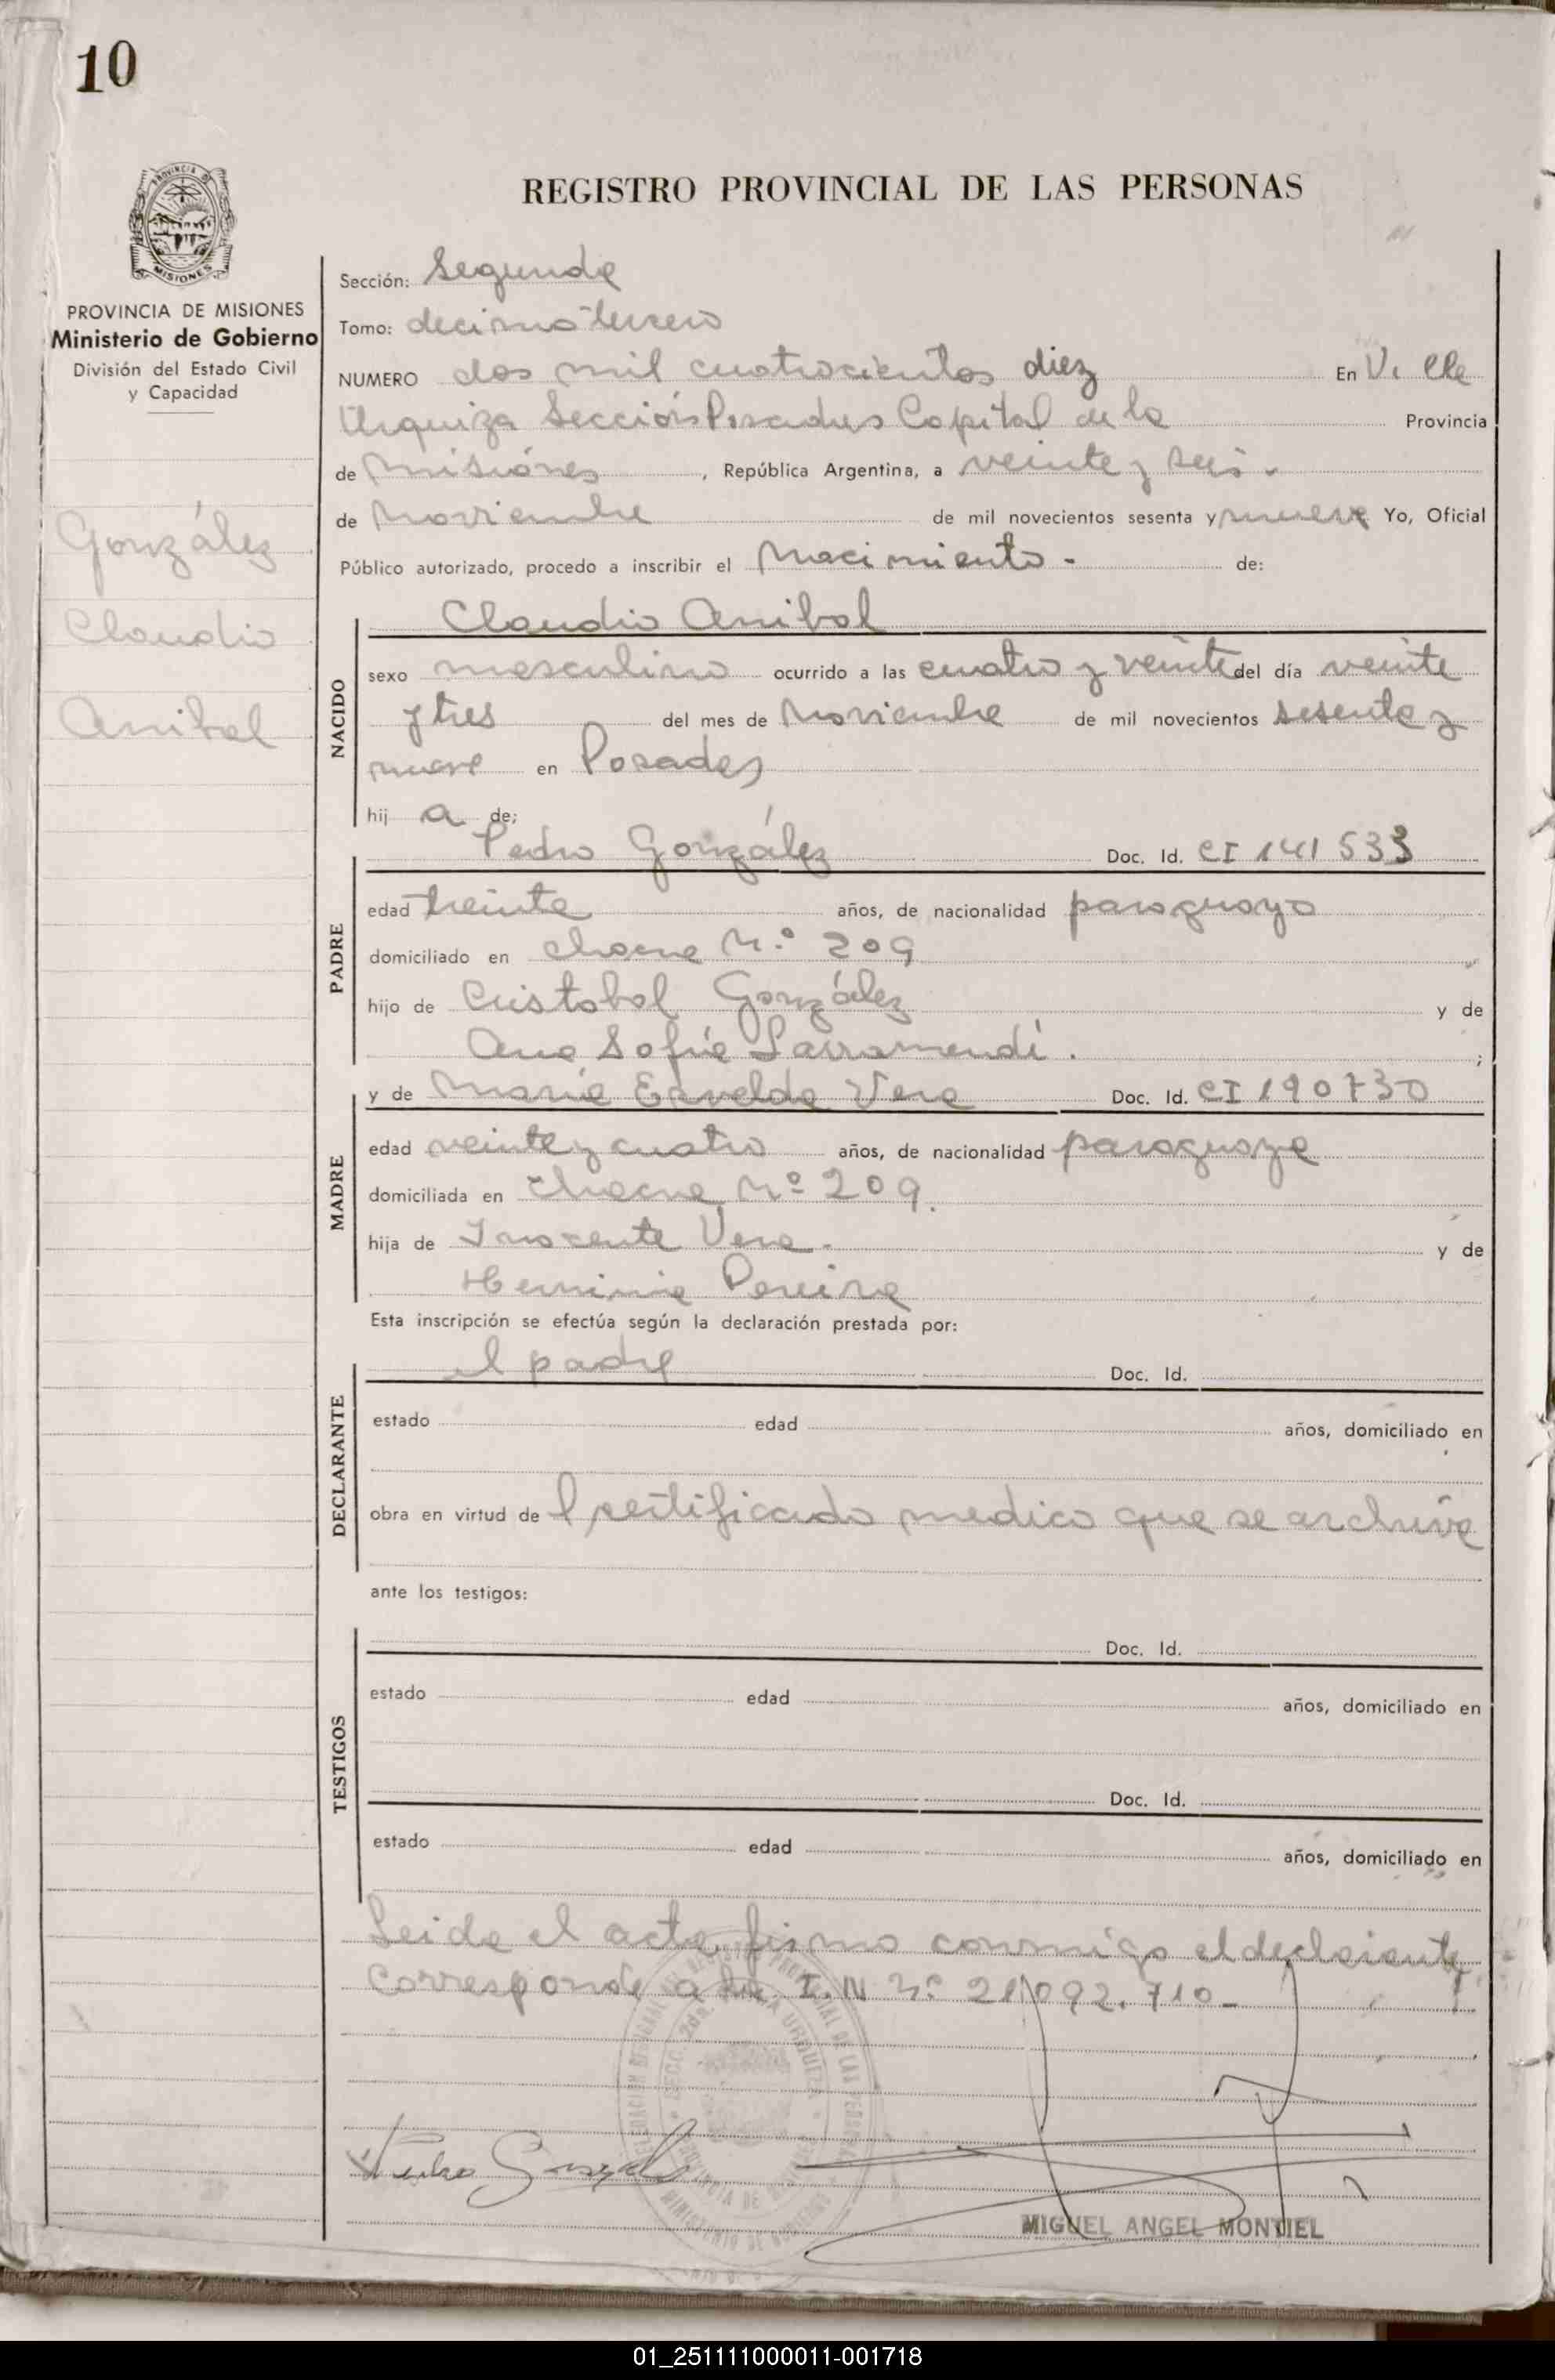 10
PROVINCIA DE
MISIONES
PROVINCIA DE MISIONES
Ministerio de Gobierno
División del Estado Civil
y Capacidad
González
Claudio
Anibal
REGISTRO PROVINCIAL DE LAS PERSONAS
Sección: Segunda
Tomo: decimo tercero
NUMERO dos mil cuatrocientos diez En Villa
Urquiza Sección Posadas Capital de la Provincia
de Misiones, República Argentina, a veinte y seis.
de Noviembre de mil novecientos sesenta y nueve Yo, Oficial
Público autorizado, procedo a inscribir el Nacimiento - de:
NACIDO
Claudio Anibal
sexo masculino ocurrido a las cuatro y veinte del día veinte
y tres del mes de Noviembre de mil novecientos sesenta y
nueve en Posadas
hij a de;
PADRE
Pedro González Doc. Id. CI 141 533
edad treinta años, de nacionalidad paraguayo
domiciliado en chacra N.º 209
hijo de Cristobal González y de
Ana Sofia Larramendi. ;
MADRE
y de Maria Vera Doc. Id. CI 190730
edad veinte y cuatro años, de nacionalidad paraguaya
domiciliada en chacra Nº 209.
hija de Inocente Vera. y de
Herminia Pereira
Esta inscripción se efectúa según la declaración prestada por:
DECLARANTE
el padre Doc. Id.
estado edad años, domiciliado en
obra en virtud de l certificado medico que se archiva
ante los testigos:
TESTIGOS
Doc. Id.
estado edad años, domiciliado en
Doc. Id.
estado edad años, domiciliado en
Leida el acta, firma conmigo el declarante
Corresponde a la I.N Nº 21.092.710-
Pedro González
MIGUEL ANGEL MONTIEL
01_251111000011-001718